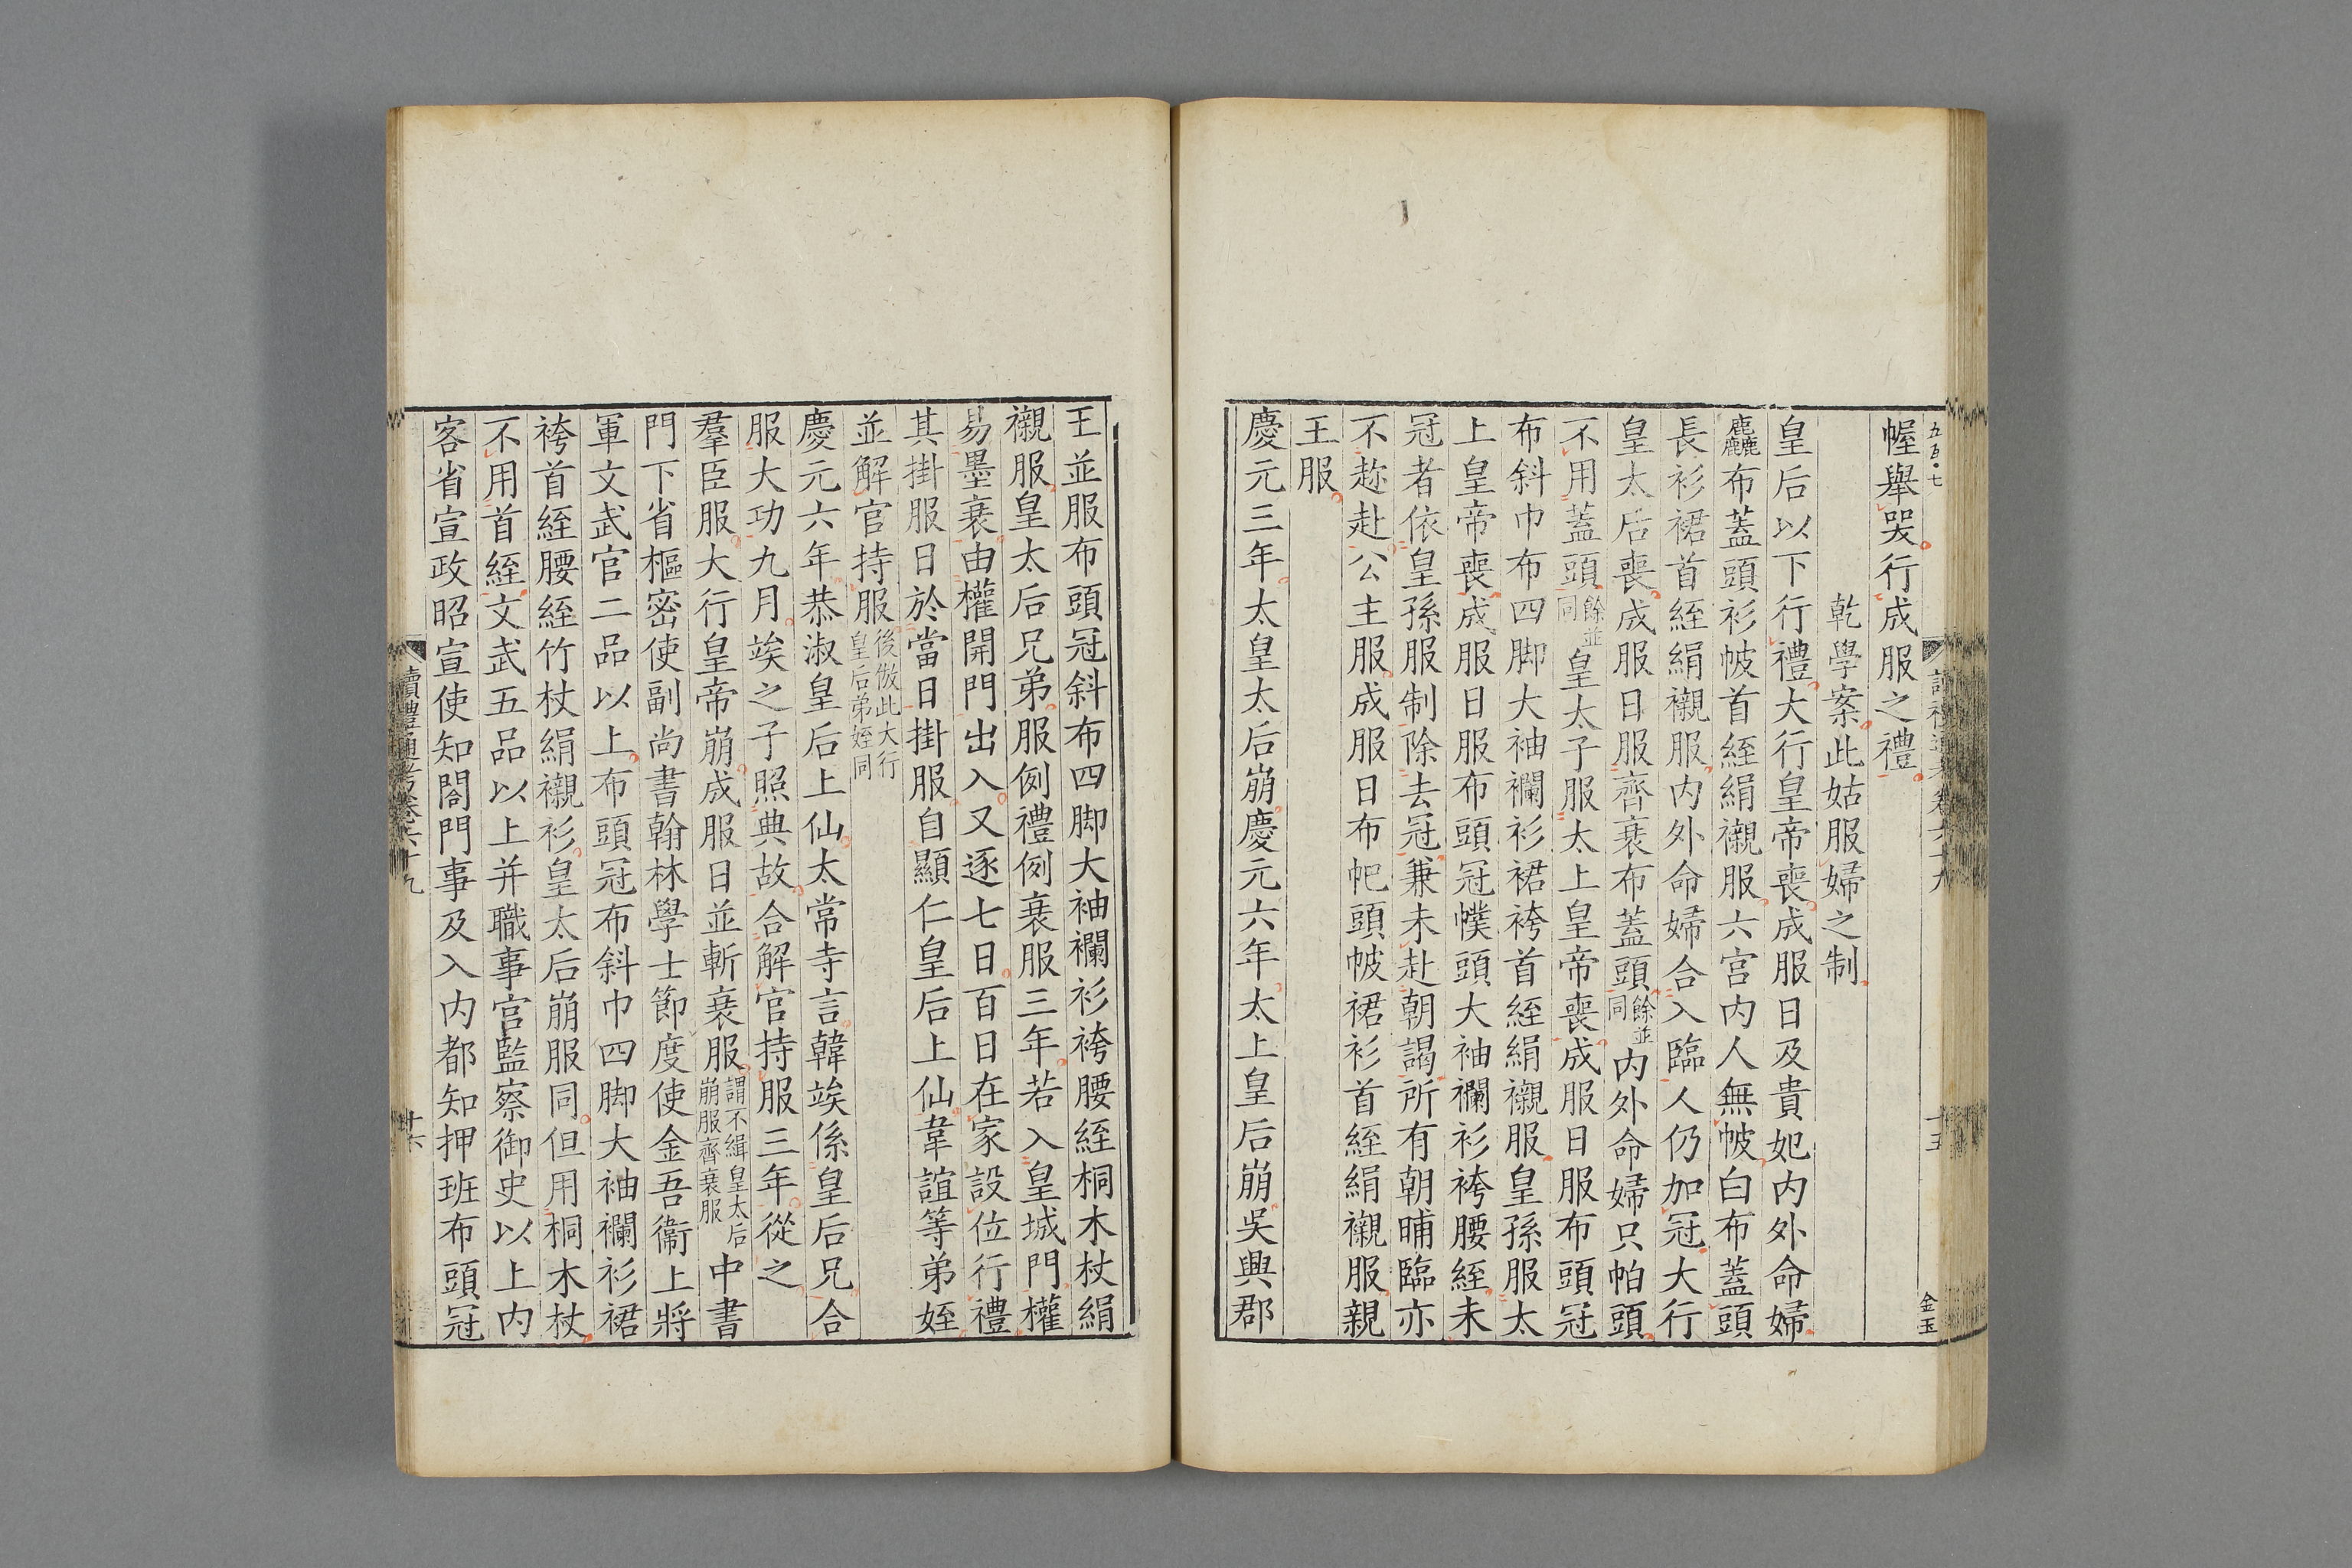 幄舉哭行成服之禮
乾學案此姑服婦之制
皇后以下行禮大行皇帝喪成服日及貴妃内外命婦
麤布蓋頭衫帔首絰絹襯服六宮内人無帔白布蓋頭
長衫裙首絰絹襯服内外命婦合入臨人仍加冠大行
皇太后喪成服日服齊衰布蓋頭餘並同内外命婦只帕頭
不用蓋頭餘並同皇太子服太上皇帝喪成服日服布頭冠
布斜巾布四脚大袖襴衫裙袴首絰絹襯服皇孫服太
上皇帝喪成服日服布頭冠幞頭大袖襴衫袴腰絰未
冠者依皇孫服制除去冠兼未赴朝謁所有朝晡臨亦
不趂赴公主服成服日布帊頭帔裙衫首絰絹襯服親
王服
慶元三年太皇太后崩慶元六年太上皇后崩吳興郡
王並服布頭冠斜布四脚大袖襴衫袴腰絰桐木杖絹
襯服皇太后兄弟服例禮例衰服三年若入皇城門權
易墨衰由權開門出入又逐七日百日在家設位行禮
其掛服日於當日掛服自顯仁皇后上仙韋誼等弟姪
並解官持服後倣此大行皇后弟姪同
慶元六年恭淑皇后上仙太常寺言韓竢係皇后兄合
服大功九月竢之子照典故合解官持服三年從之
羣臣服大行皇帝崩成服日並斬衰服謂不緝皇太后崩服齊衰服中書
門下省樞密使副尚書翰林學士節度使金吾衞上將
軍文武官二品以上布頭冠布斜巾四脚大袖襴衫裙
袴首絰腰絰竹杖絹襯衫皇太后崩服同但用桐木杖
不用首絰文武五品以上并職事官監察御史以上内
客省宣政昭宣使知閤門事及入内都知押班布頭冠
讀禮通考卷六十九
十六
十五
金玉